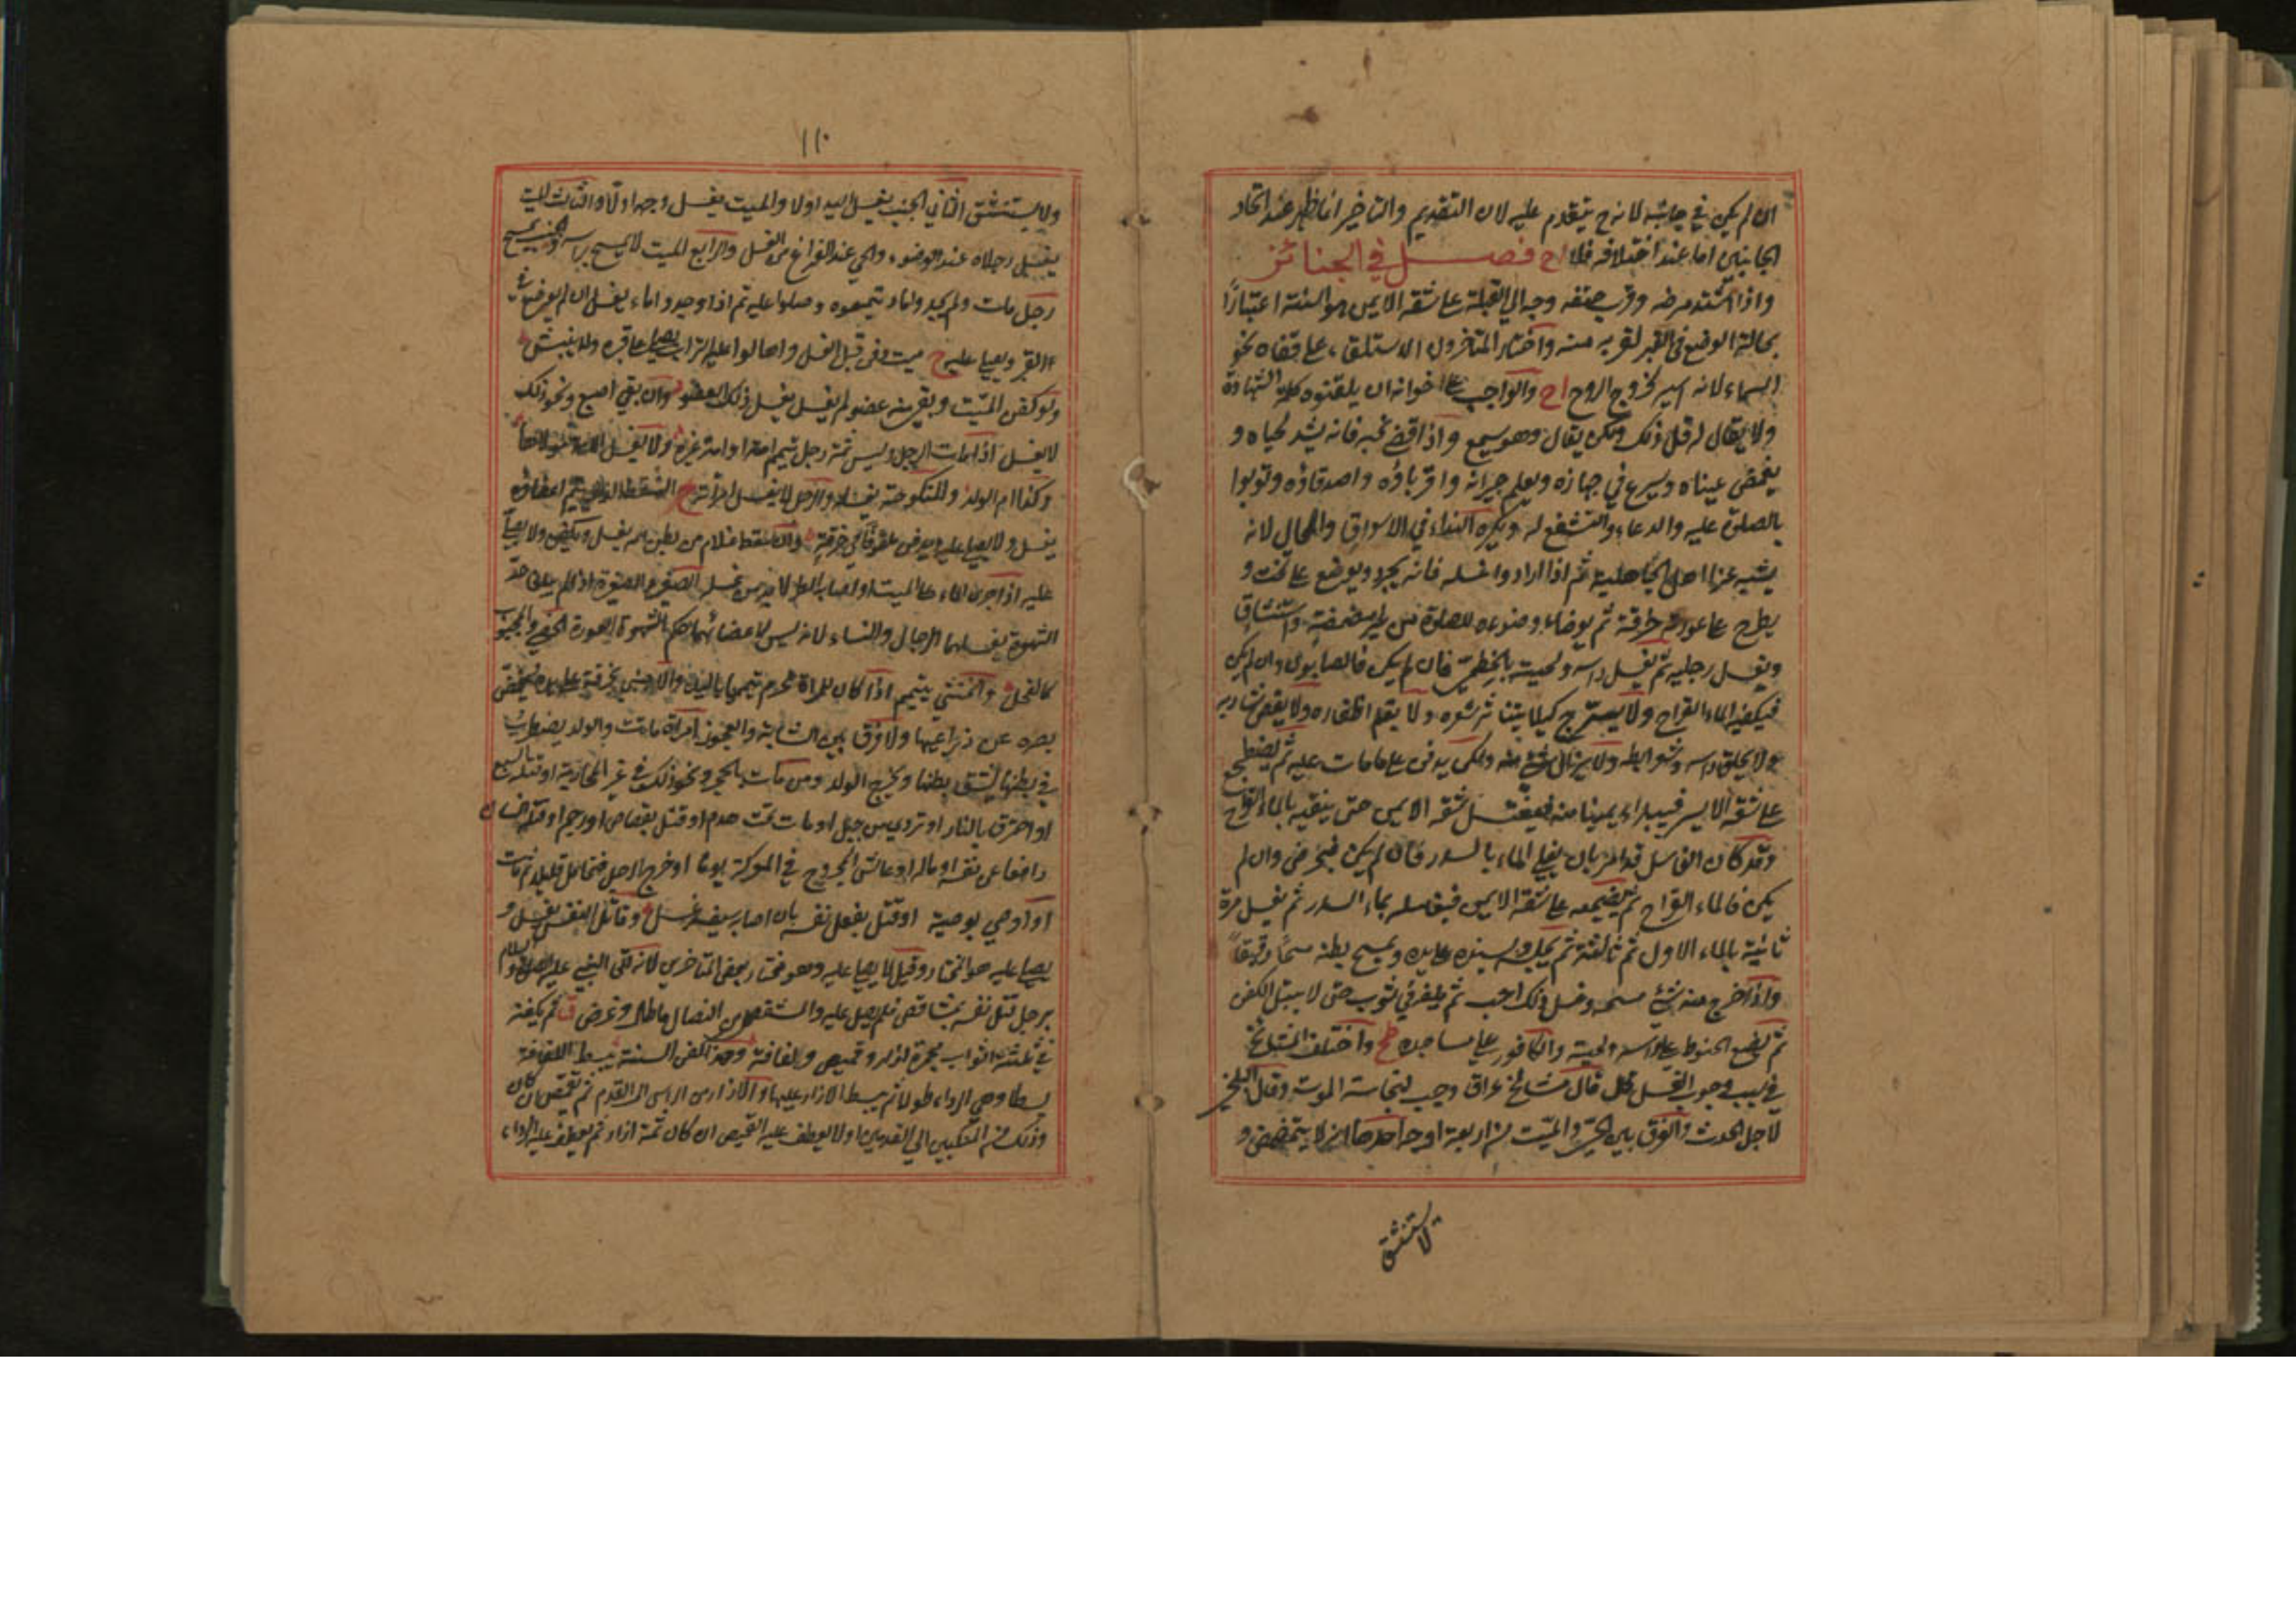 ان لم يكن في جانبه لانه ح يتقدم عليه لان التقديم والتاخير انما يظهر عند اتحاد
الجانبين اما عند اختلافه فلا اح فصل في الجنائز
واذا اشتد مرضه وقرب حتفه وجه الي القبلة علي شقه الايمن هو السنة اعتبارًا
بحالة الوضع في القبر لقربه منه واختار المتاخرون الاستلقاء علي قفاه نحو
السماء لانه ايسر لخروج الروح اح والواجب علي اخوانه ان يلقنوه كلمة الشهادة
ولا يقال له قل ذلك ولكن يقال وهو يسمع واذا قضي نحبه فانه يشد لحياه و
يغمض عيناه ويسرع في جهازه ويعلم جيرانه واقرباؤه واصدقاؤه
بالصلوة عليه والدعاء والتشفع له ويكره النداء في الاسواق والمحال لانه
يشبه عزاء اهل الجاهلية ثم اذا ارادوا غسله فانه يجرد ويوضع علي تخت و
يطرح علي عورته خرقة ثم يوضا وضوءه للصلوة من غير مضمضة واستنشاق
ويغسل رجليه ثم يغسل راسه ولحيته بالخطمي فان لم يكن فالصابون وان لم يكن
فيكفيه الماء القراح ولا يسرح كيلا يتناثر شعره ولا يقلم اظفاره ولا يقص شاربه
ولا يحلق راسه وشعر ابطه ولا يزال شئ منه ولكن يدفن علي ما مات عليه ثم يضطجع
علي شقه الايسر فيبداء بميامنه فيغسل شقه الايمن حتى ينقيه بالماء القراح
وقد كان الغاسل قد امر بان يغلي الماء بالسدر فان لم يكن فبحرض وان لم
يكن فالماء القراح ثم يضجعه علي شقه الايمن فيغسله بماء السدر ثم يغسل مرة
ثانية بالماء الاول ثم ثالثة ثم يجلسه ويسنده علي يده ويمسح بطنه مسحًا رقيقًا
واذا خرج منه شئ مسحه وغسل ذلك ثم ينشف في ثوب حتى لا يبتل الكفن
ثم يضع الحنوط علي راسه ولحيته والكافور علي مساجده واختلف المشايخ
في سبب وجوب الغسل قال مشايخ عراق وجب لنجاسة الموت وقال البلخي
لاجل الحدث والفرق بين الحي والميت من اربعة اوجه احدها انه لا يتمضمض و
لا يستنشق
١١٠
ولا يستنشق الثاني الجنب يغسل اليد اولا والميت يغسل وجهه اولًا والثالث الميت
يغسل رجلاه عند الوضوء والحي عند الفراغ من الغسل والرابع الميت لا يمسح براسه والجنب يمسح
رجل مات ولم يجدوا ماء تيمموه وصلوا عليه ثم اذا وجدوا ماء يغسل ان لم يوضع في
القبر ويصلي عليه ح ميت دفن قبل الغسل واهالوا عليه التراب يصلي علي قبره ولا ينبش
ولو كفن الميت وبقي منه عضو لم يغسل يغسل ذلك العضو وان بقي اصبع ونحو ذلك
لا يغسل اذا مات الرجل وليس ثمة رجل تيمم امته او امة غيره ولا يغسل
وكذا ام الولد والمنكوحة يغسله والرجل لا يغسل امراته السقط الذي لم يتم اعضاؤه
يغسل ولا يصلي عليه ويدفن ملفوفًا في خرقة والسقط غلام من بطن امه يغسل ويكفن ولا يصلي
عليه اذا جري الماء علي الميت او اصابه المطر لا بد من غسله الصغير والصغيرة اذا لم يبلغا حد
الشهوة يغسلهما الرجال والنساء لانه ليس لاعضائهما حكم العورة الخصي والمجبوب
كالفحل والخنثي يتيمم اذا كان للمراة محرم تيممها باليد والاجنبي بخرقة علي يده ويغض
بصره عن ذراعيها ولا فرق بين الشابة والعجوز امراة ماتت والولد يضطرب
في بطنها يشق بطنها ويخرج الولد ومن مات بالحجر ونحو ذلك في غير المحاربة او قتله السبع
او احترق بالنار او تردي من جبل او مات تحت هدم او قتل بقصاص او رجم او قتله انسان
دافعا عن نفسه او ماله او عاش المجروح في المعركة يوما او خرج الرجل فتحامل قليلا ثم مات
او اوصي بوصية او قتل بفعل نفسه بان اصابه سيفه غسل وقاتل النفس يغسل و
يصلي عليه هو المختار وقيل لا يصلي عليه وهو مختار بعض المتاخرين لانه اتي النبي عليه الصلوة والسلام
برجل قتل نفسه بمشاقص فلم يصل عليه والمشقص من النصال ما طال وعرض ثم يكفنه
في ثلثة اثواب مجمرة ازار وقميص ولفافة وهذا كفن السنة يبسط اللفافة
بسطا وهي الرداء طولا ثم يبسط الازار عليها والازار من الراس الي القدم ثم يقمص ان كان
وذلك من المنكبين الي القدمين اولا يعطف عليه القميص ان كان ثمة ازار ثم يعطف عليه الرداء